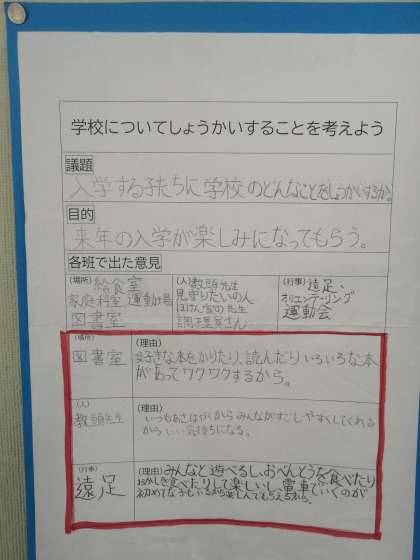 学校についてしょうかいすることを考えよう
議題
入学する子たちに学校のどんなことをしょうかいするか。
目的
来年の入学が楽しみになってもらう。
各班で出た意見
(場所)給食室
家庭科室、運動場
図書室
(人)教頭先生
見守りたいの人
ほけん室の先生
調理員さん
(行事)遠足、
オリエンテーリング
運動会
(場所)
図書室
(理由)
好きな本をかりたり、読んだりいろいろな本
があってワクワクするから。
(人)
教頭先生
(理由)
いつもあさはやくからみんながすごしやすくしてくれる
からいい気持ちになる。
(行事)
遠足
(理由)みんなと遊べるし、おべんとうを食べたり
おかしを食べたりして楽しいし、電車でいくのが
初めてな子もいるから楽しんでもらえるから。